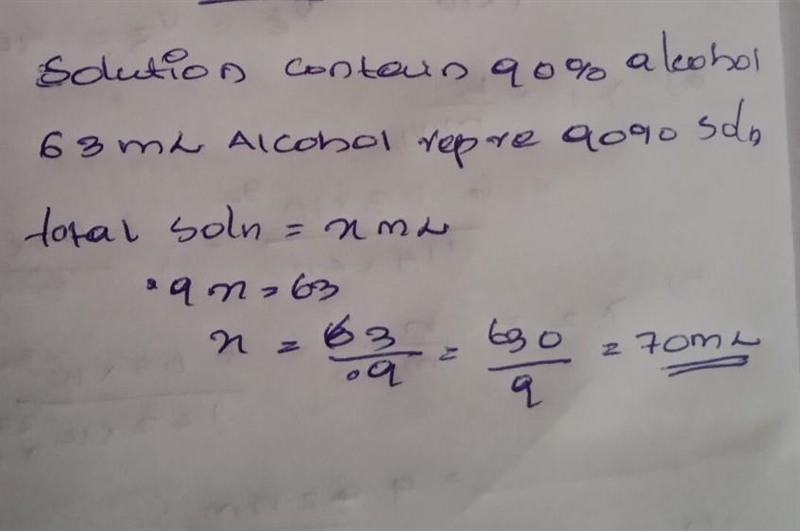 Solution contain 90% alcohol
63 mL Alcohol repre 90% soln
total soln = x mL
.9x = 63
x = 63/.9 = 630/9 = 70mL